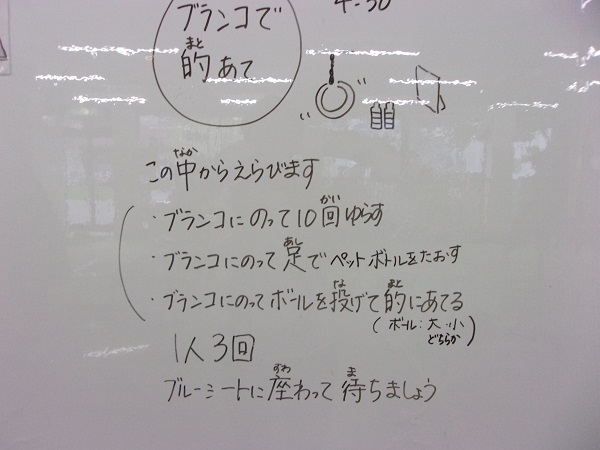 ブランコで
的あて
まと
この中からえらびます
なか
・ブランコにのって10回ゆらす
かい
・ブランコにのって足でペットボトルをたおす
あし
・ブランコにのってボールを投げて的にあてる
な
まと
(ボール:大・小
どちらか)
1人3回
ブルーシートに座わって待ちましょう
すわ
ま